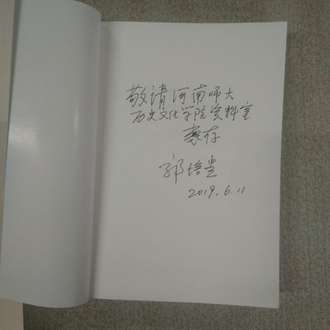 敬请河南师大
历史文化学院资料室
惠存
郭培贵
2019.6.11